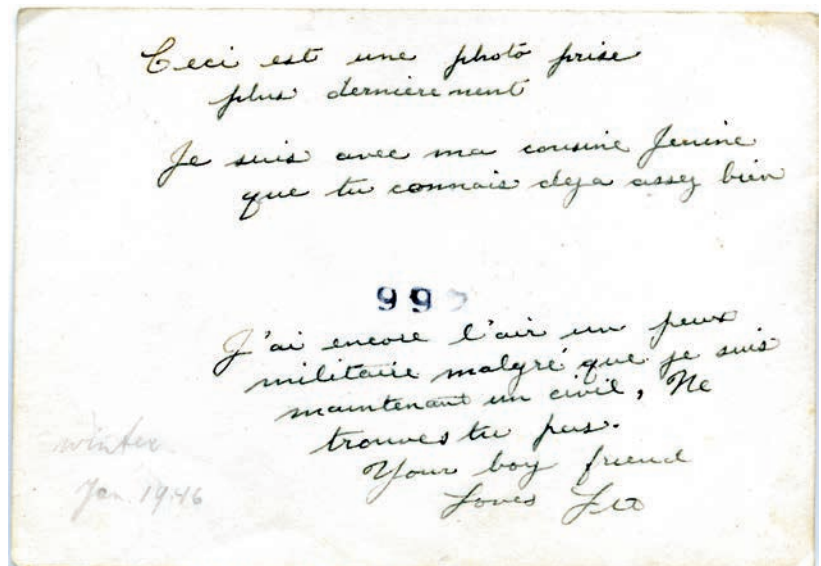 Ceci est une photo prise
plus dernièrement
Je suis avec ma cousine Jenine
que tu connais deja assez bien
99
J'ai encore l'air un peux
militaire malgré que je suis
maintenant un civil, Ne
trouves tu pas.
Your boy friend
Loves Leo
winter
Jan. 1946